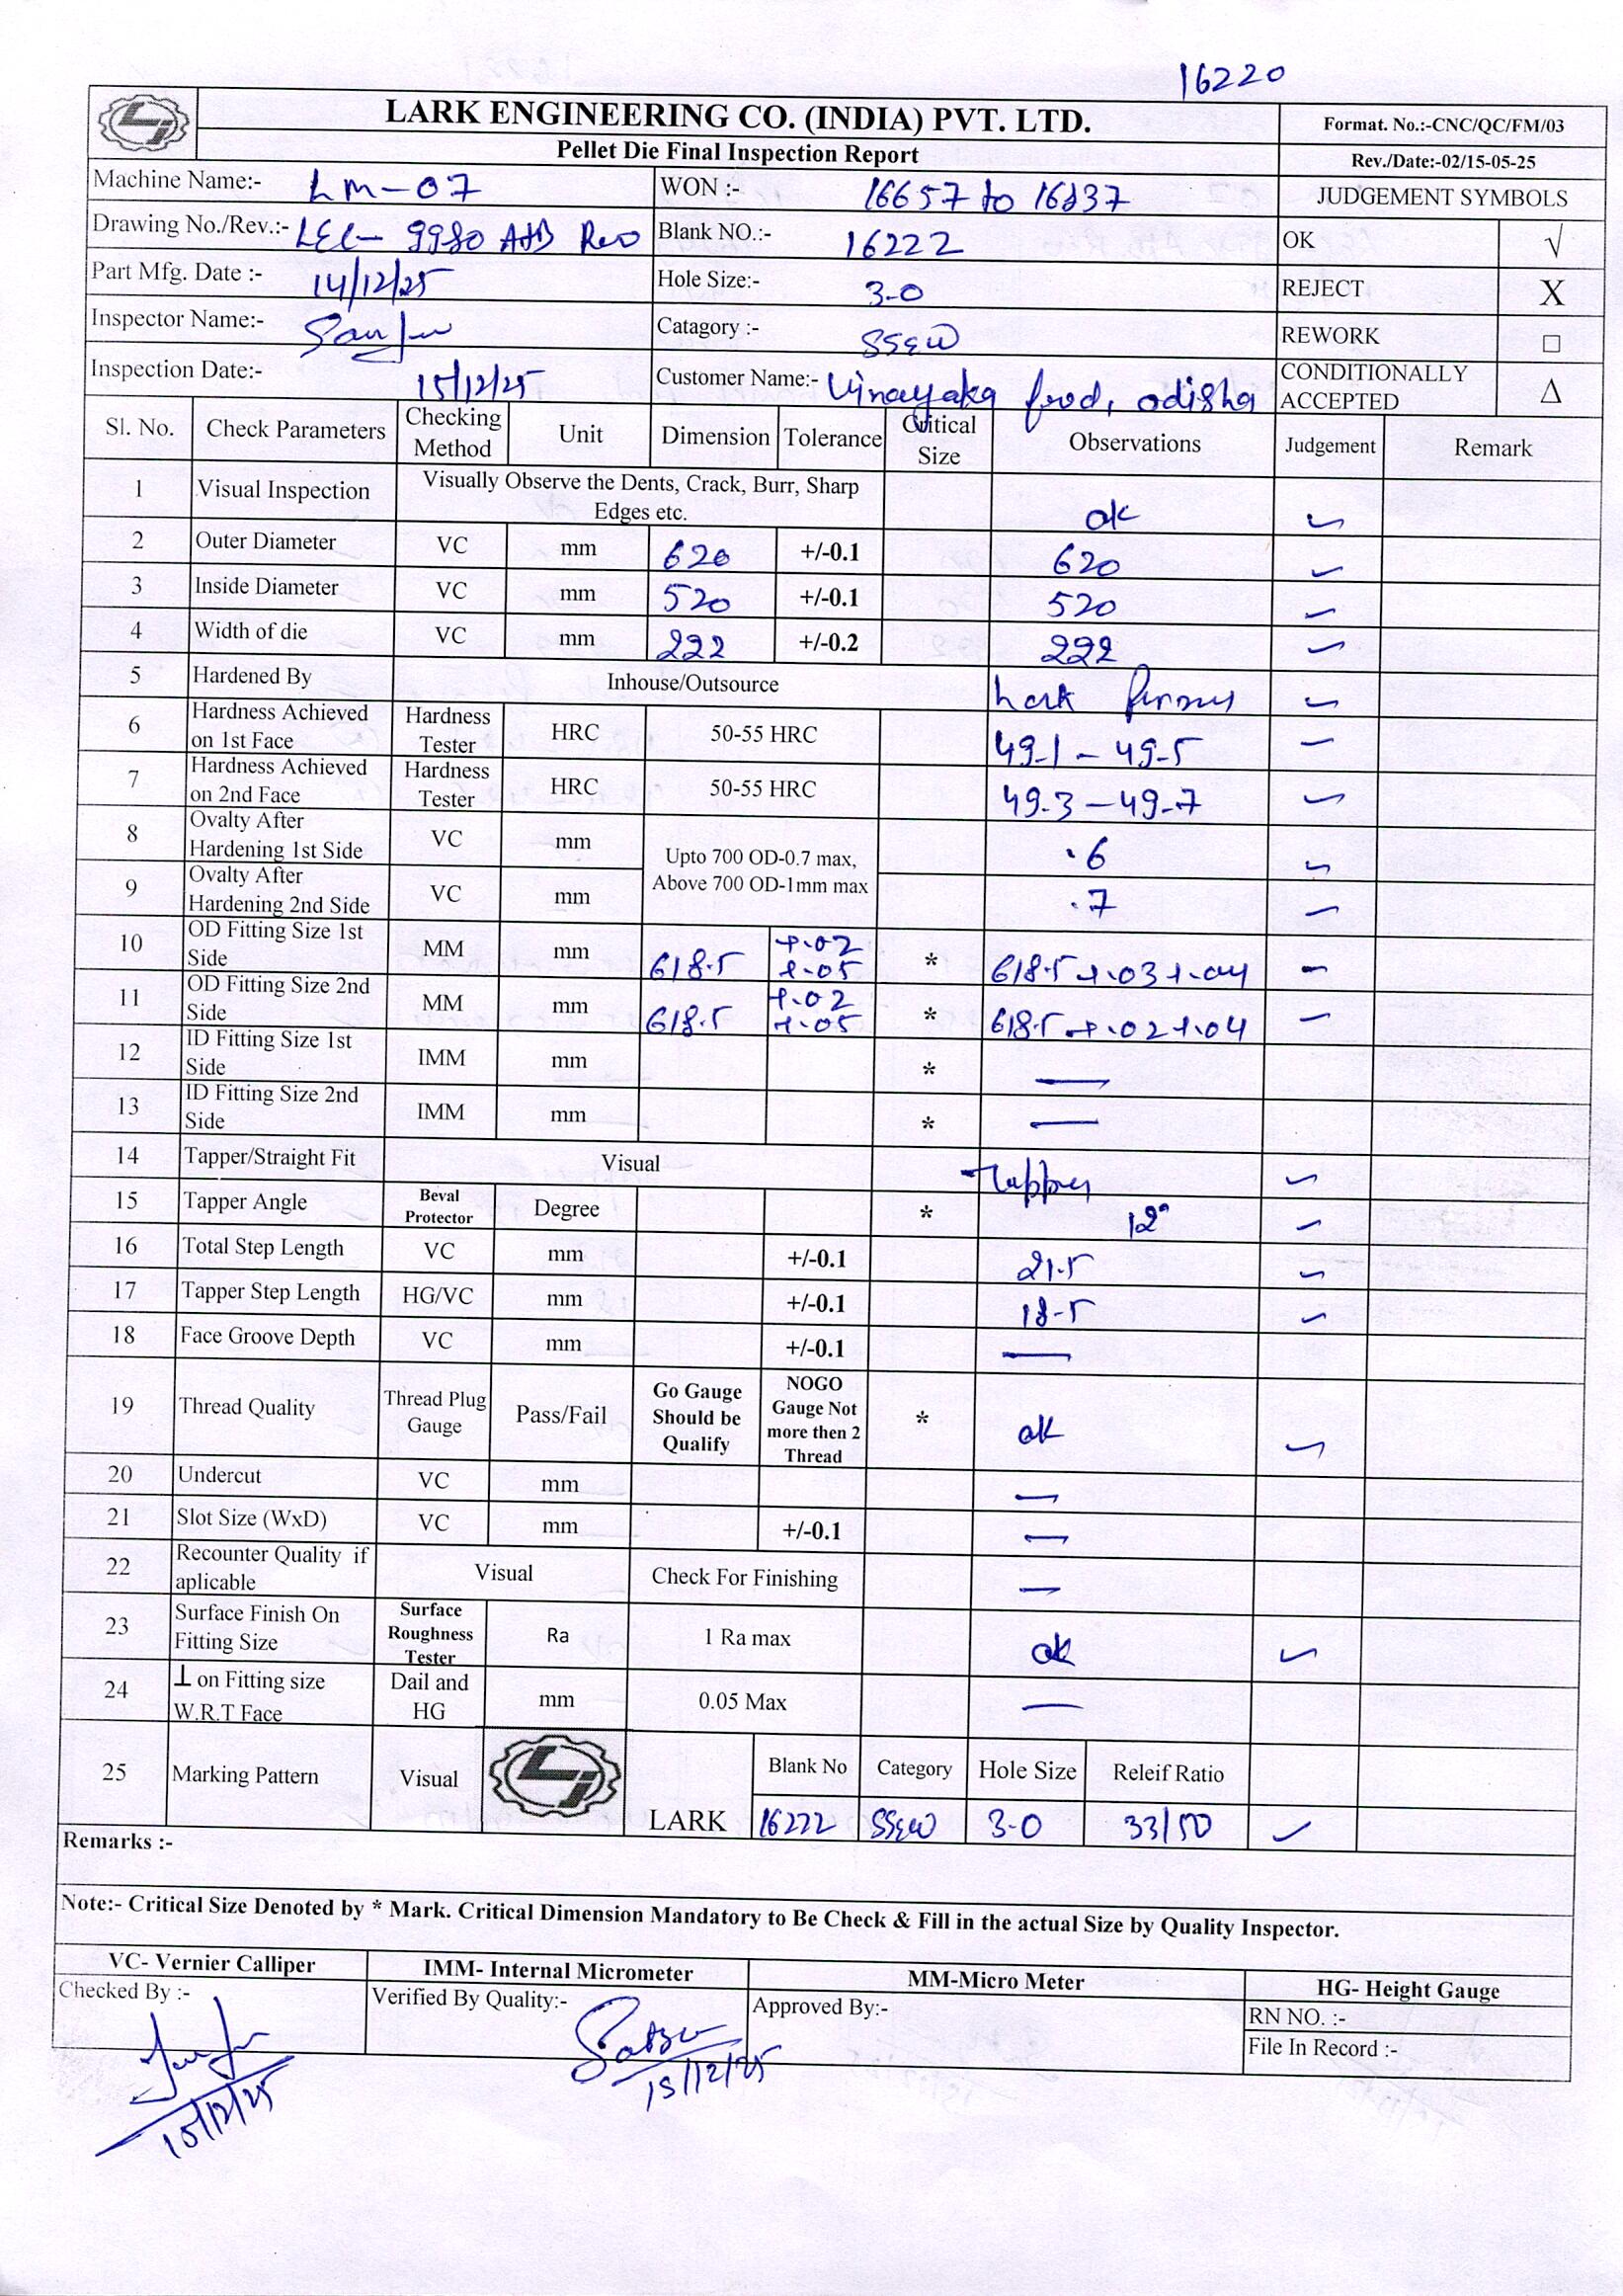 16220
LARK ENGINEERING CO. (INDIA) PVT. LTD.
Format. No.:-CNC/QC/FM/03
Pellet Die Final Inspection Report
Rev./Date:-02/15-05-25
Machine Name:- LM-07 WON :- 16657 to 16837 JUDGEMENT SYMBOLS
Drawing No./Rev.:- LEC- 9980 Blank NO.:- 16222 OK √
Part Mfg. Date :- 14/12/25 Hole Size:- 3-0 REJECT X
Inspector Name:- Catagory :- SS&W REWORK □
Inspection Date:- 15/12/25 Customer Name:- Vinayaka food, odisha CONDITIONALLY ACCEPTED Δ
Sl. No. Check Parameters Checking Method Unit Dimension Tolerance Critical Size Observations Judgement Remark
1 Visual Inspection Visually Observe the Dents, Crack, Burr, Sharp Edges etc. ok ✓
2 Outer Diameter VC mm 620 +/-0.1 620 ✓
3 Inside Diameter VC mm 520 +/-0.1 520 ✓
4 Width of die VC mm 222 +/-0.2 222 ✓
5 Hardened By Inhouse/Outsource Lark ✓
6 Hardness Achieved on 1st Face Hardness Tester HRC 50-55 HRC 49-1 - 49-5 ✓
7 Hardness Achieved on 2nd Face Hardness Tester HRC 50-55 HRC 49-3 - 49-7 ✓
8 Ovalty After Hardening 1st Side VC mm Upto 700 OD-0.7 max, Above 700 OD-1mm max .6 ✓
9 Ovalty After Hardening 2nd Side VC mm .7 ✓
10 OD Fitting Size 1st Side MM mm 618.5 +.02 +.05 * 618.5 +.03 +.04 ✓
11 OD Fitting Size 2nd Side MM mm 618.5 +.02 +.05 * 618.5 +.02 +.04 ✓
12 ID Fitting Size 1st Side IMM mm * —
13 ID Fitting Size 2nd Side IMM mm * —
14 Tapper/Straight Fit Visual Tapper ✓
15 Tapper Angle Beval Protector Degree * 12° ✓
16 Total Step Length VC mm +/-0.1 21.5 ✓
17 Tapper Step Length HG/VC mm +/-0.1 18-5 ✓
18 Face Groove Depth VC mm +/-0.1 —
19 Thread Quality Thread Plug Gauge Pass/Fail Go Gauge Should be Qualify NOGO Gauge Not more then 2 Thread * ok ✓
20 Undercut VC mm —
21 Slot Size (WxD) VC mm +/-0.1 —
22 Recounter Quality if aplicable Visual Check For Finishing —
23 Surface Finish On Fitting Size Surface Roughness Tester Ra 1 Ra max ok ✓
24 ⊥ on Fitting size W.R.T Face Dail and HG mm 0.05 Max —
25 Marking Pattern Visual LARK Blank No Category Hole Size Releif Ratio
16222 SS&W 3-0 33/50 ✓
Remarks :-
Note:- Critical Size Denoted by * Mark. Critical Dimension Mandatory to Be Check & Fill in the actual Size by Quality Inspector.
VC- Vernier Calliper IMM- Internal Micrometer MM-Micro Meter HG- Height Gauge
Checked By :- Verified By Quality:- Approved By:- RN NO. :-
File In Record :-
15/12/25
15/12/25